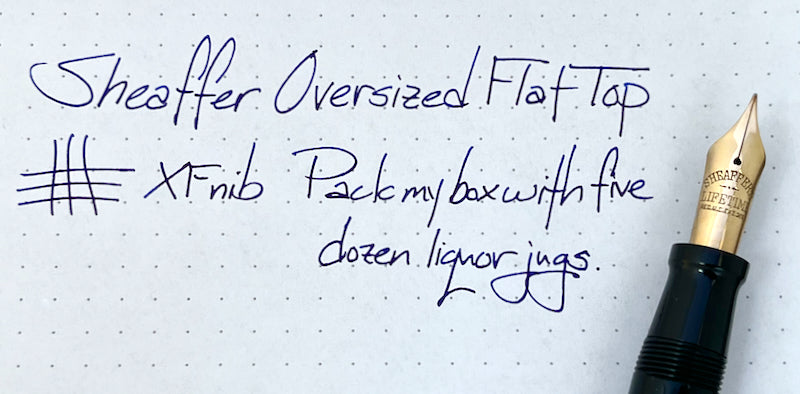 Sheaffer Oversized Flat Top
XF nib Pack my box with five
dozen liquor jugs.
SHEAFFER'S
LIFETIME